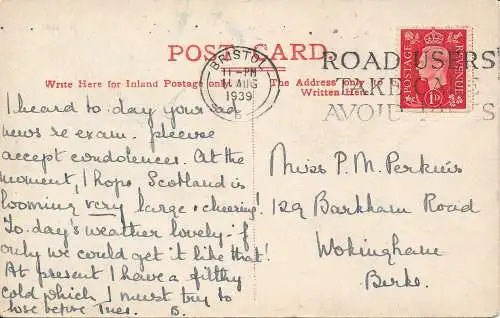 POST CARD
Write Here for Inland Postage only.
The Address only to be
Written Here.
BRISTOL
11-PM
11 AUG
1939
ROAD USERS
TAKE CARE
AVOID
POSTAGE
REVENUE
1D
I heard to-day your sad
news re exam. Please
accept condolences. At the
moment, I hope, Scotland is
looming very large & cheering!
To-day's weather lovely - if
only we could get it like that!
At present I have a filthy
cold which I must try to
lose before Tues. B.
Miss P. M. Perkins
129 Barkham Road
Wokingham
Berks.